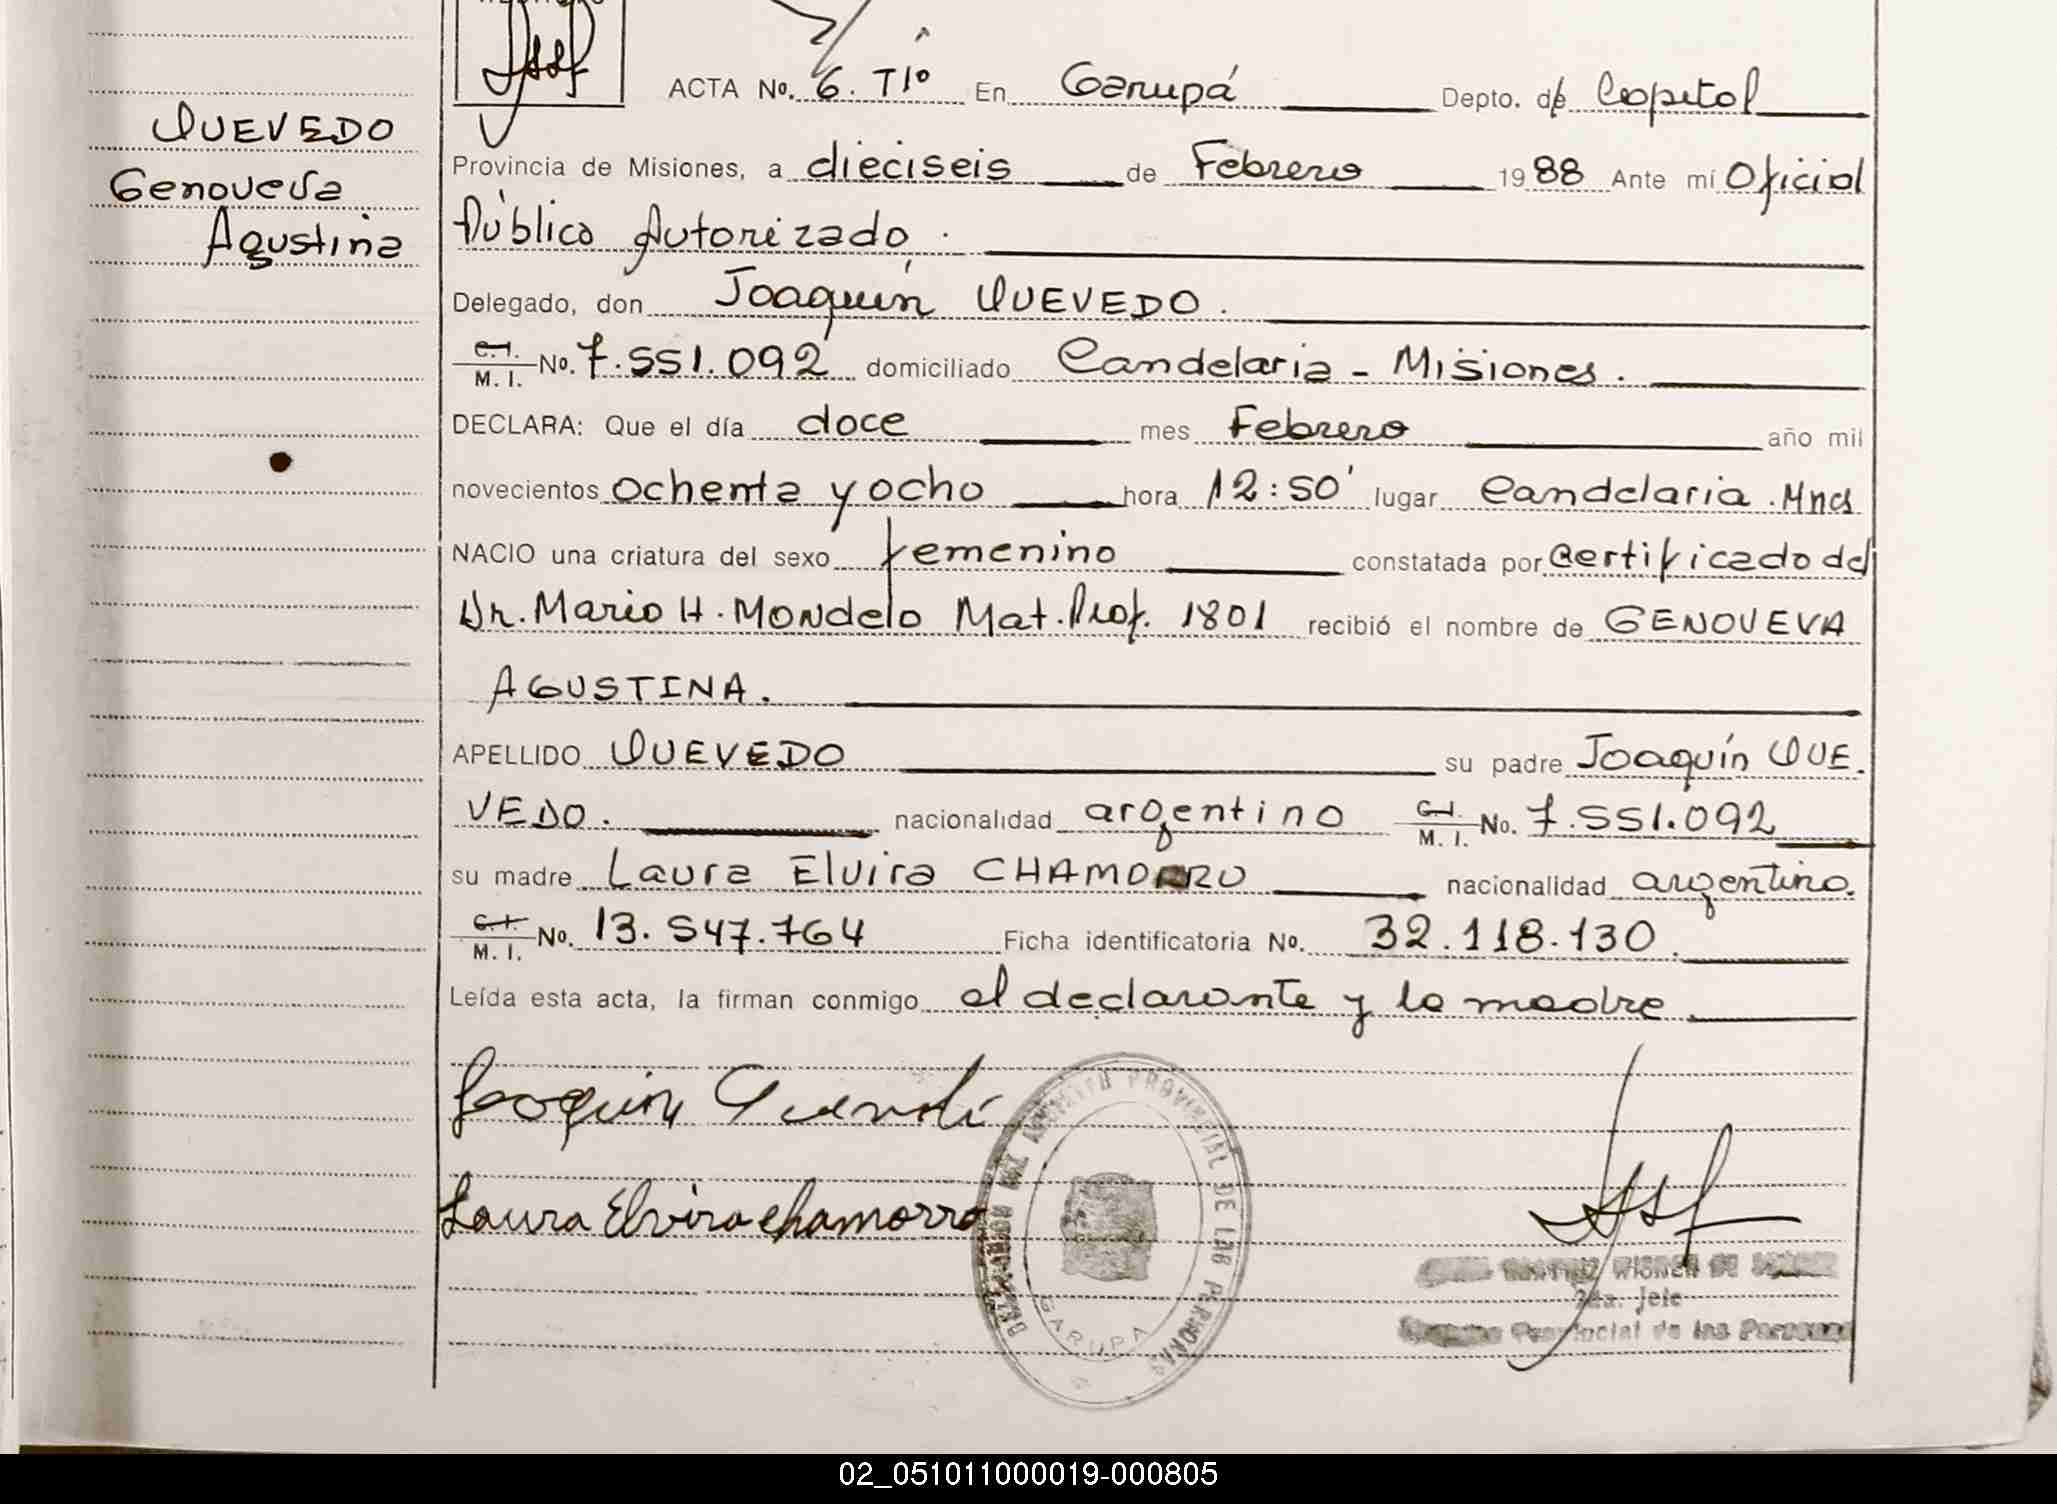 ACTA No. 6. Tº En Garupá Depto. de Capital
QUEVEDO
Provincia de Misiones, a dieciseis de Febrero 1988 Ante mí Oficial
Genoveva
Público Autorizado.
Agustina
Delegado, don Joaquín QUEVEDO.
C.I. M. I. No. 7.551.092 domiciliado Candelaria - Misiones.
DECLARA: Que el día doce mes Febrero año mil
novecientos ochenta y ocho hora 12:50' lugar Candelaria. Mnes
NACIO una criatura del sexo femenino constatada por Certificado del
Dr. Mario H. Mondelo Mat. Prof. 1801 recibió el nombre de GENOVEVA
AGUSTINA.
APELLIDO QUEVEDO su padre Joaquín QUE-
VEDO. nacionalidad argentino C.I. M. I. No. 7.551.092
su madre Laura Elvira CHAMORRO nacionalidad argentina.
C.I. M. I. No. 13.547.764 Ficha identificatoria No. 32.118.130.
Leída esta acta, la firman conmigo el declarante y la madre
Joaquin
Laura Elvira Chamorro
PROVINCIAL DE LAS PERSONAS
GARUPA
WIGNER DE
2da. Jefe
Provincial de las Personas
02_051011000019-000805